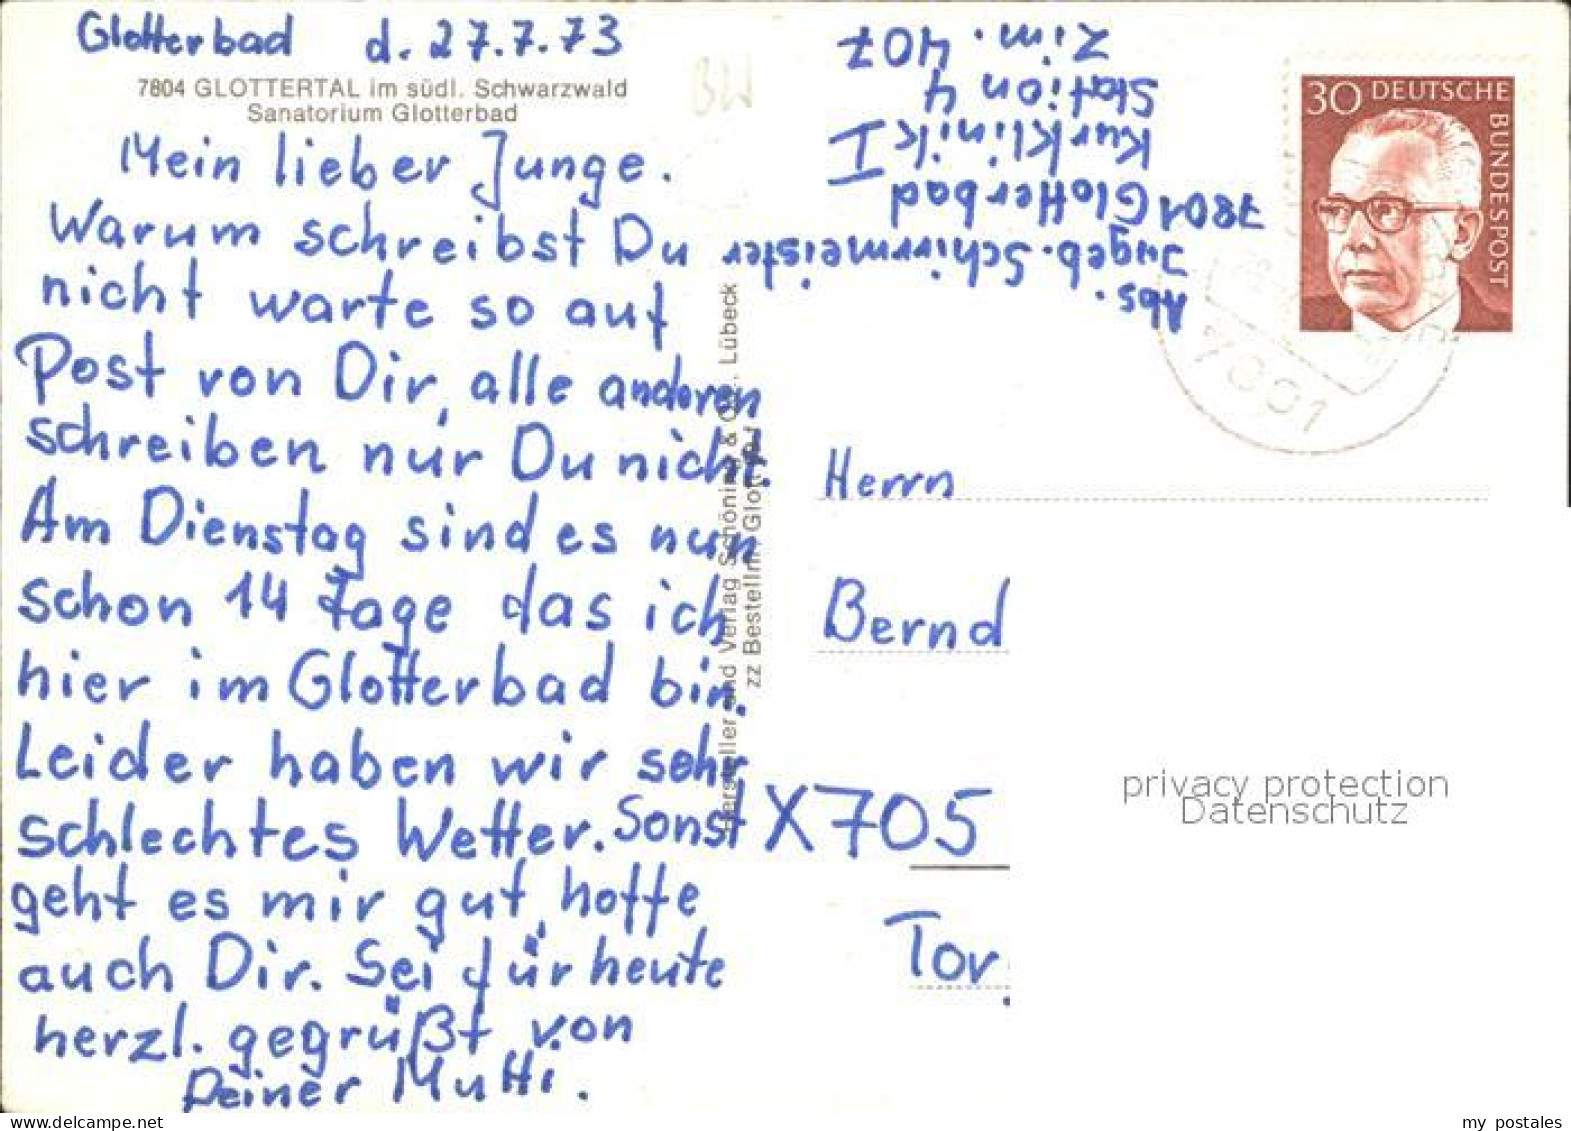 Glotterbad d. 27.7.73
7804 GLOTTERTAL im südl. Schwarzwald
Sanatorium Glotterbad
Mein lieber Junge.
Warum schreibst Du
nicht warte so auf
Post von Dir, alle anderen
schreiben nur Du nicht.
Am Dienstag sind es nun
schon 14 Tage das ich
hier im Glotterbad bin.
Leider haben wir sehr
schlechtes Wetter. Sonst
geht es mir gut, hoffe
auch Dir. Sei für heute
herzl. gegrüßt von
Deiner Mutti.
Hersteller und Verlag Schöning & Co., Lübeck
zz Bestellnr. Glott
Abs.
Ingeb. Schirrmeister
7801 Glotterbad
Kurklinik I
Station 4
Zim. 407
30 DEUTSCHE
BUNDESPOST
7801
Herrn
Bernd
X705
Tor
privacy protection
Datenschutz
my postales
www.delcampe.net